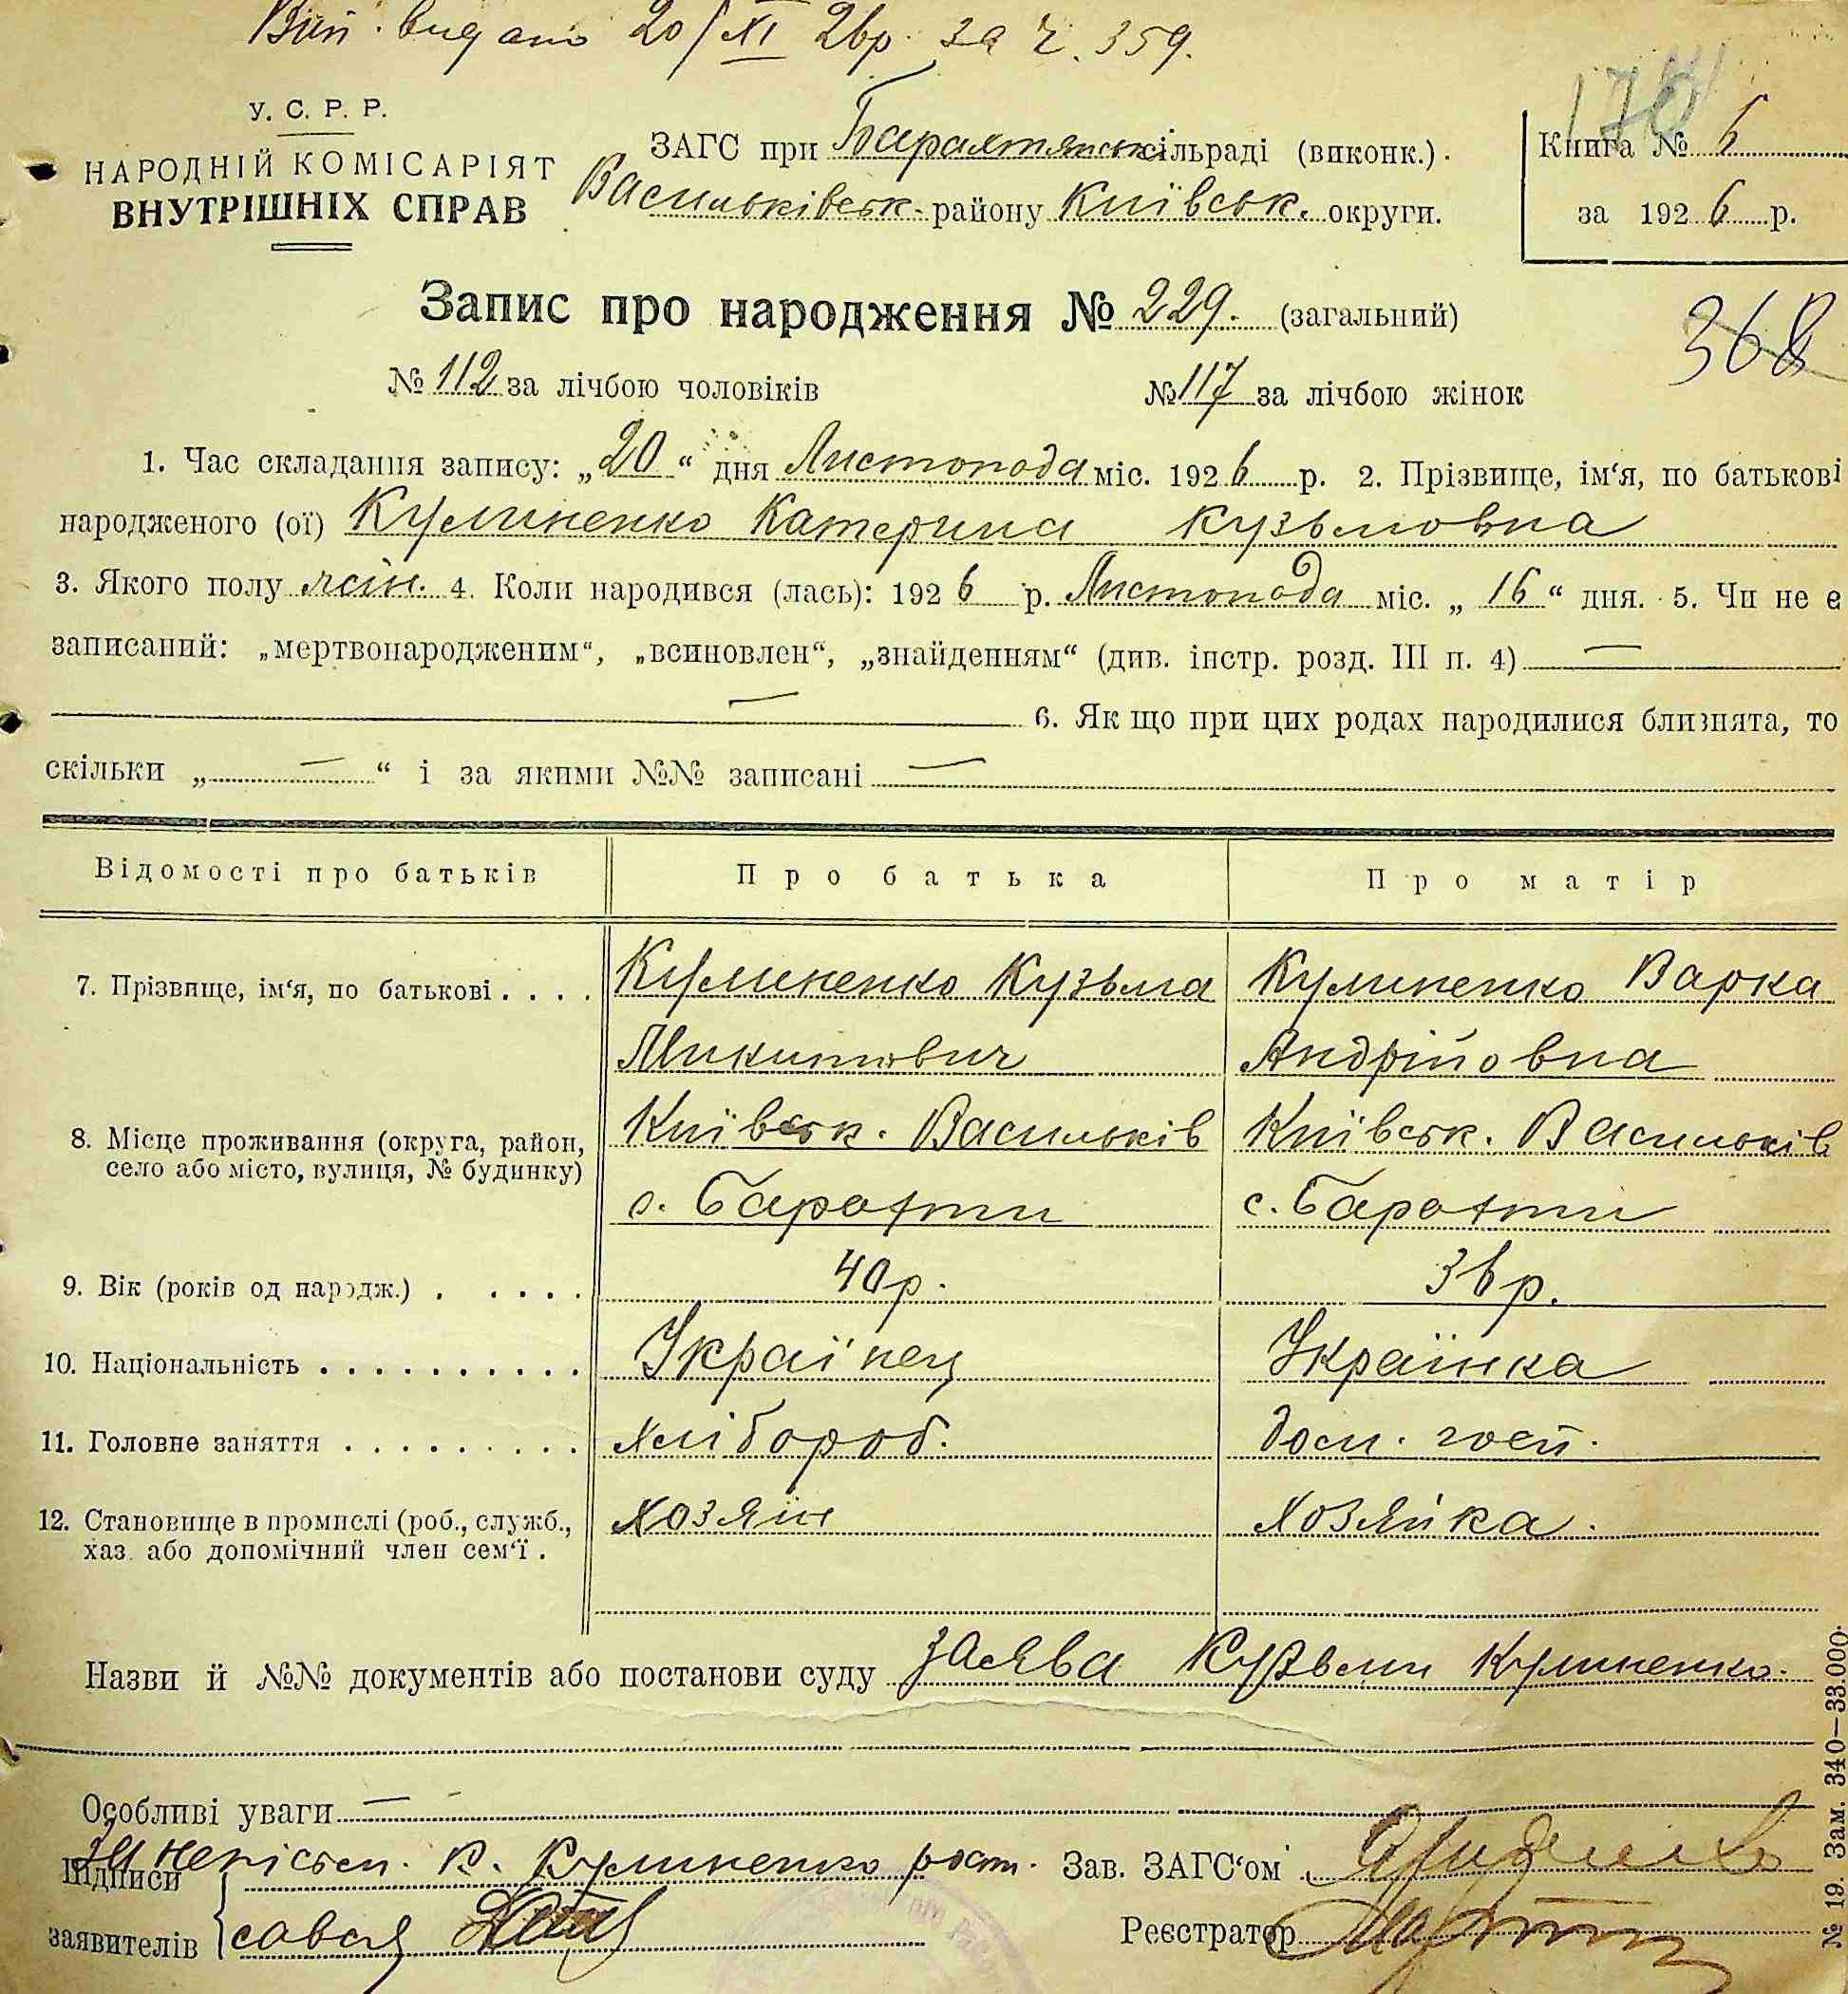 Вип. видано 20/XI 26р. за ч. 359.
170
У. С. Р. Р.
НАРОДНІЙ КОМІСАРІЯТ
ВНУТРІШНІХ СПРАВ
ЗАГС при Барахтянськ сільраді (виконк.).
Васильківськ. району Київськ. округи.
Книга № 6
за 1926 р.
Запис про народження № 229. (загальний)
368
№ 112 за лічбою чоловіків № 117 за лічбою жінок
1. Час складання запису: „20“ дня Листопада міс. 1926 р. 2. Прізвище, ім‘я, по батькові
народженого (ої) Кулиненко Катерина Кузьмовна
3. Якого полу жін. 4. Коли народився (лась): 1926 р. Листопада міс. „16“ дня. 5. Чи не є
записаний: „мертвонародженим“, „всиновлен“, „знайденням“ (див. інстр. розд. III п. 4) —
— 6. Як що при цих родах народилися близнята, то
скільки „—“ і за якими №№ записані —
Відомості про батьків Про батька Про матір
7. Прізвище, ім‘я, по батькові.... Кулиненко Кузьма Кулиненко Варка
Микитович Андрійовна
8. Місце проживання (округа, район, Київськ. Васильків Київськ. Васильків
село або місто, вулиця, № будинку) с. Барахти с. Барахти
9. Вік (років од народж.) ..... 40р. 36р.
10. Національність .......... Українец Українка
11. Головне заняття .......... хлібороб. дом. госп.
12. Становище в промислі (роб., служб., хозяїн хозяйка.
хаз. або допомічний член сем‘ї .
Назви й №№ документів або постанови суду заява Кузьми Кулиненко.
Особливі уваги — -
За неписьм. К. Кулиненко розп.
Підписи
заявителів
Зав. ЗАГС‘ом
Реєстратор
№ 19. Зам. 340—33.000.